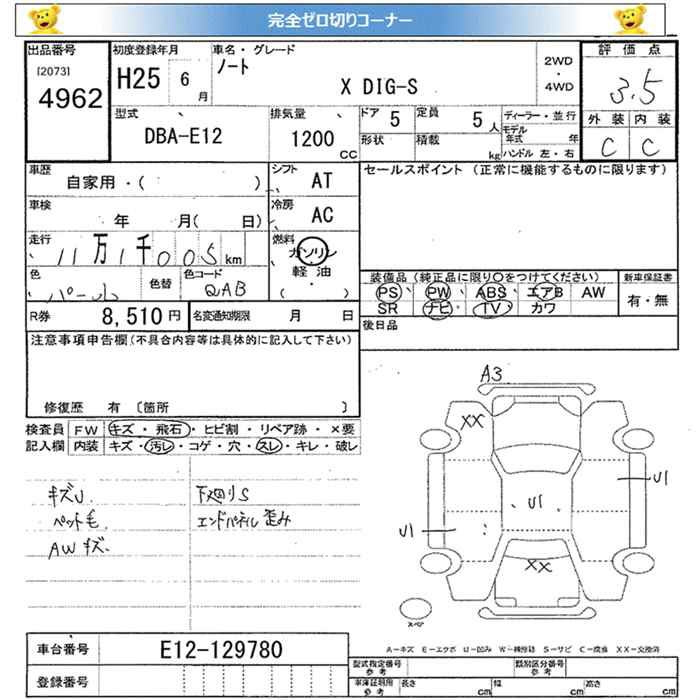 完全ゼロ切りコーナー
出品番号
[2073]
4962
初度登録年月
H25 6 月
車名・グレード
ノート
X DIG-S
2WD
・
4WD
評価点
3.5
外装 内装
C C
型式
DBA-E12
排気量
1200 CC
ドア 5
定員 5 人
形状
積載 kg
ディーラー・並行
モデル年式 年
ハンドル 左・右
車歴
自家用・( )
シフト AT
車検
年 月( 日)
冷房 AC
走行
11万1千005 km
燃料
ガソリン
軽油
( ・ )
色
パール
色替
色コード
QAB
R券 8,510 円
名変通知期限 月 日
セールスポイント (正常に機能するものに限ります)
装備品(純正品に限り○をつけてください)
PS PW ABS エアB AW
SR ナビ TV カワ
新車保証書
有・無
後日品
注意事項申告欄(不具合内容等は具体的に記入して下さい)
修復歴 有 〔箇所 〕
検査員記入欄
FW キズ・飛石・ヒビ割・リペア跡・×要
内装 キズ・汚レ・コゲ・穴・スレ・キレ・破レ
キズU
ペット毛
AWキズ
下廻りS
エンドパネル歪み
A3
XX
U1
U1
U1
XX
スペア
A-キズ E-エクボ U-凹み W-補修跡 S-サビ C-腐食 XX-交換済
車台番号 E12-129780
登録番号
型式指定番号
参考
類別区分番号
参考
車庫証明用
参考
長さ cm
幅 cm
高さ cm